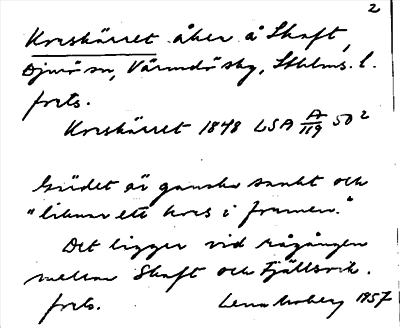 2
Korskärret åker å Skaft,
Djurö sn, Värmdö skg, Sthlms. l.
forts.
Korskärret 1848 LSA A/119 50²
Gärdet är ganska sankt och
"liknar ett kors i formen."
Det ligger vid rågången
mellan Skaft och Fjällsvik.
forts. Lena Moberg 1957